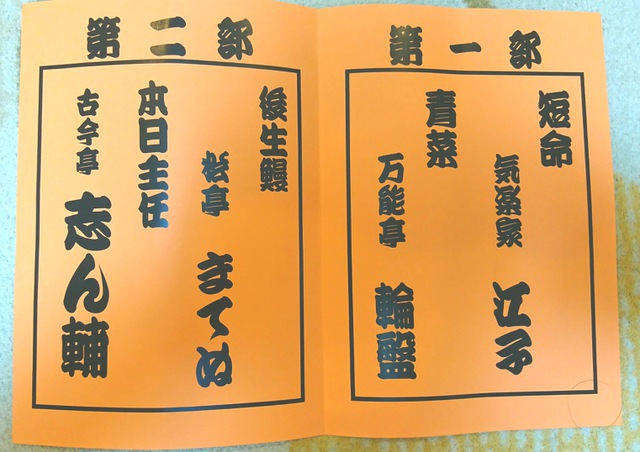 第一部
短命
気蒸泉 江子
青菜
万能亭 輪盤
第二部
後生鰻
哲亭 まてぬ
本日主任
古今亭 志ん輔